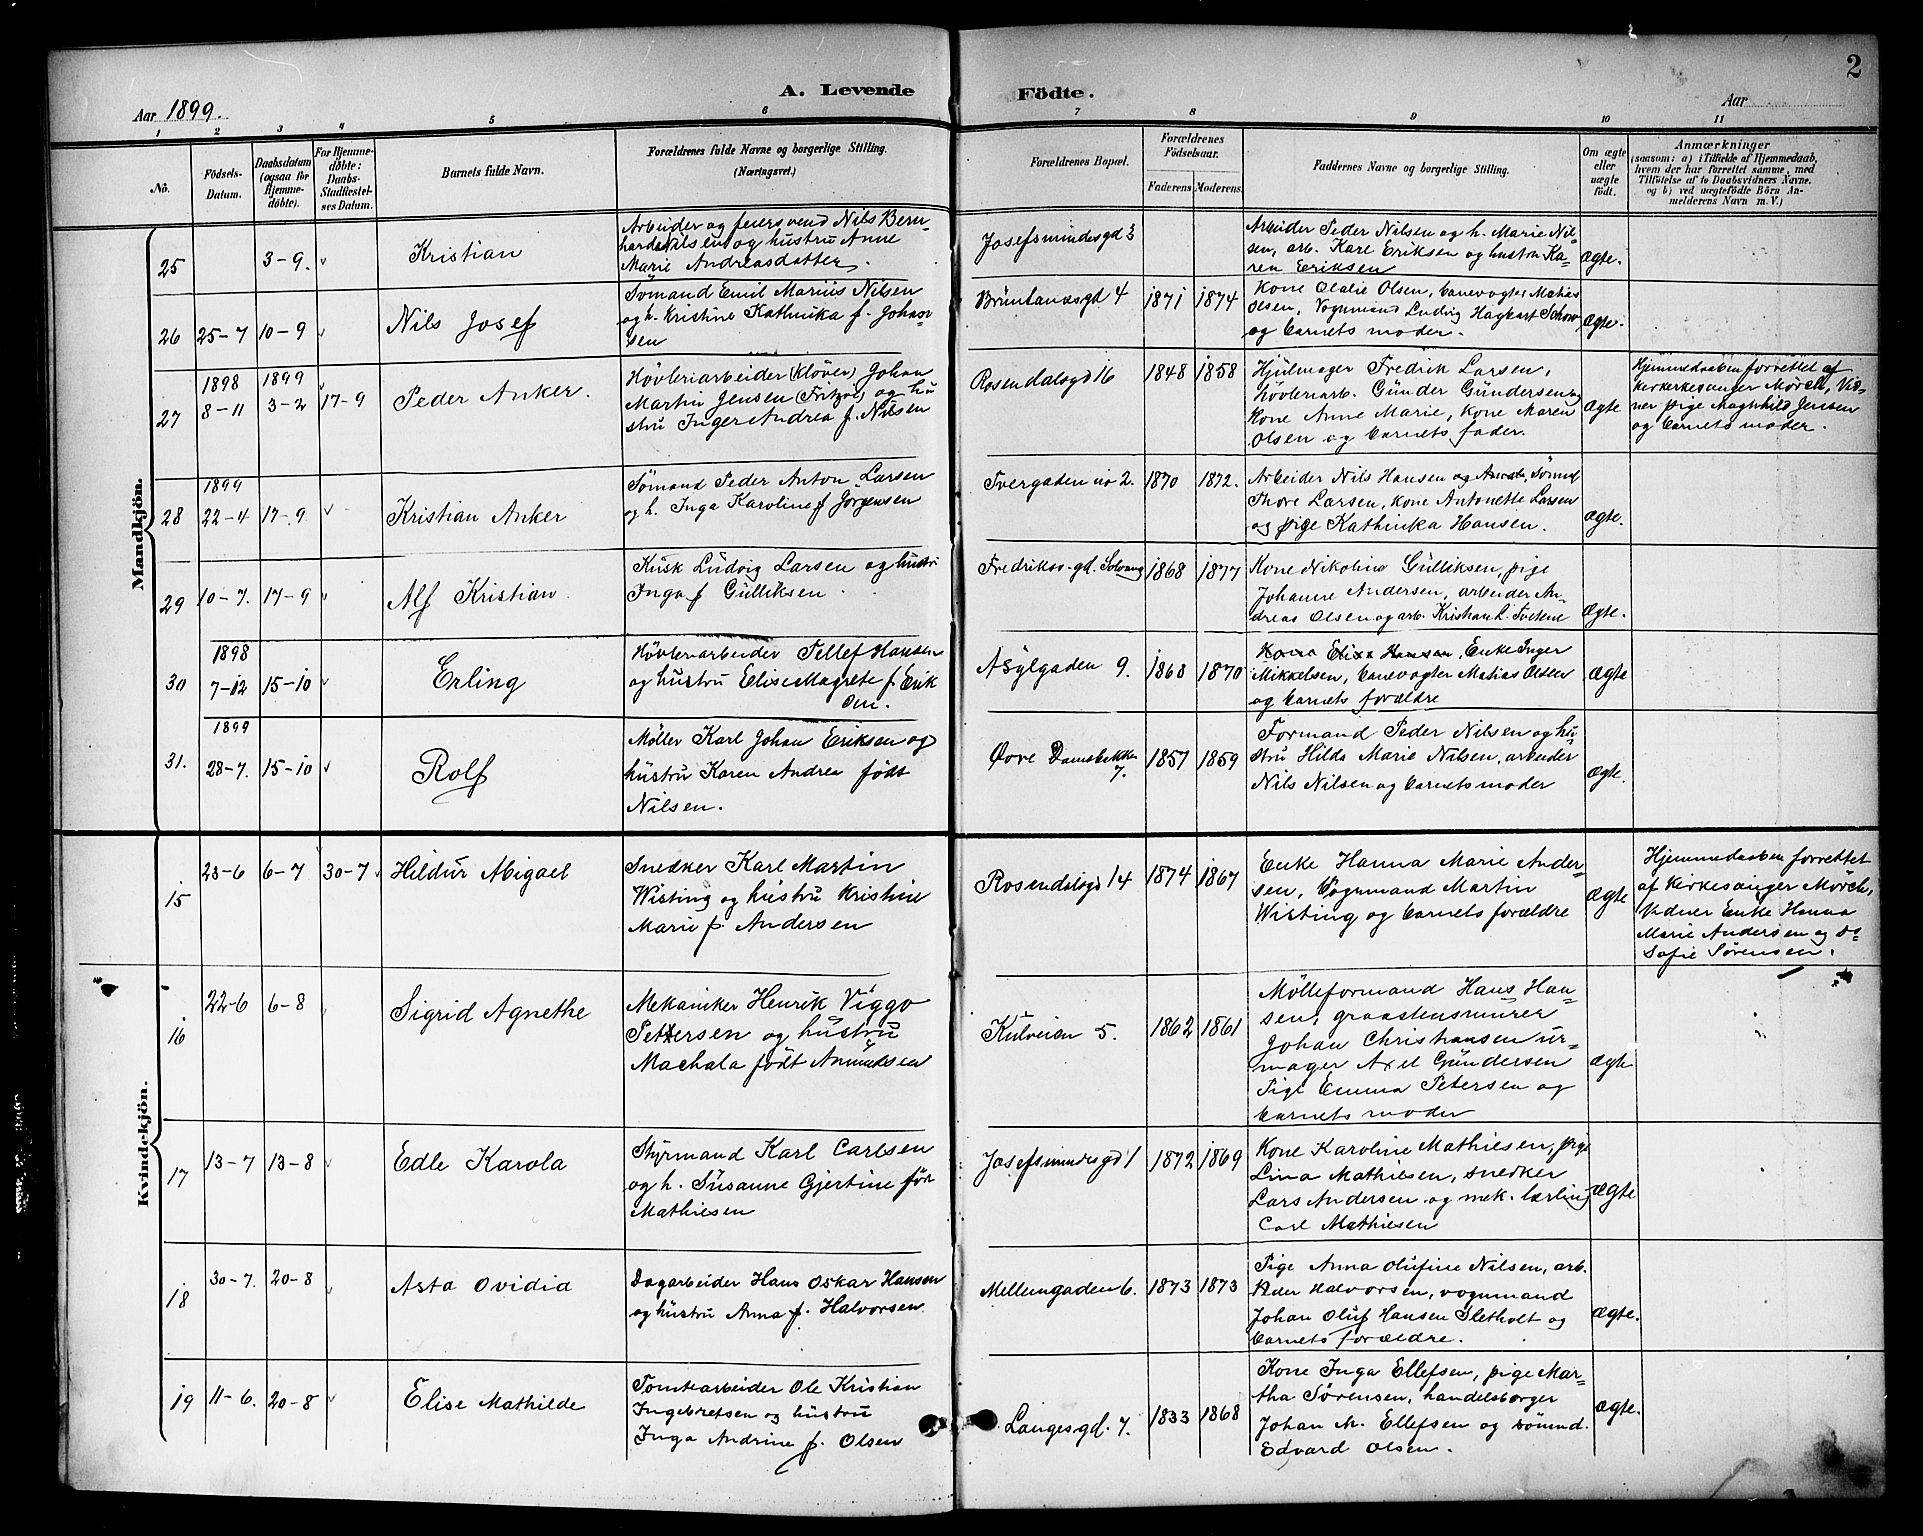 2
A. Levende Födte.
Aar 1899.
Aar
1 2 3 4 5 6 7 8 9 10 11
No.
Födsels-
Datum.
Daabsdatum
(ogsaa for
Hjemme-
döbte).
For Hjemme-
döbte:
Daabs-
Stadfæstel-
ses Datum.
Barnets fulde Navn.
Forældrenes fulde Navne og borgerlige Stilling.
(Næringsvei.)
Forældrenes Bopæl.
Forældrenes
Födselsaar.
Faderens. Moderens.
Faddernes Navne og borgerlige Stilling.
Om ægte
eller
uægte
födt.
Anmærkninger
(saasom: a) i Tilfælde af Hjemmedaab,
hvem der har forrettet samme, med
Tilföielse af to Daabsvidners Navne,
og b) ved uægtefödte Börn An-
melderens Navn m. V.)
Mandkjön.
25
3-9.
Kristian
Arbeider og feiersvend Nils Bern-
hard Nilsen og hustru Anne
Marie Andreasdatter.
Josefsmindesgd 3
Arbeider Peder Nilsen og h. Marie Nil-
sen, arb. Karl Eriksen og hustru Ka-
ren Eriksen
Ægte.
26
25-7
10-9
Nils Josef
Sømand Emil Marius Nilsen
og h. Kristine Kathinka f. Johan-
sen
Brüntanæsgd 4
1871
1874
Kone Olalie Olsen, banevogter Mathias
Olsen, Vognmand Ludvig Hagbart Schow,
og barnets moder.
Ægte.
27
1898
8-11
1899
3-2
17-9
Peder Anker.
Høvleriarbeider (Kløver) Johan
Martin Jensen (Fritzøe) og hu
stru Inger Andrea f. Nilsen
Rosendalsgd 16
1848
1858
Hjulmager Fredrik Larsen,
høvleriarb. Günder Gündersen og
kone Anne Marie, kone Maren
Olsen og barnets fader.
Ægte
Hjemmedaaben forrettet af
kirkesanger Mørch, Vid-
ner pige Magnhild Jensen
og barnets moder.
28
1899
22-4
17-9
Kristian Anker
Sømand Peder Anton Larsen
og h. Inga Karoline f Jørgensen
Tvergaden no 2.
1870
1872.
Arbeider Nils Hansen og Sømd
Thore Larsen, kone Antonette Larsen
og pige Kathinka Hansen.
Ægte.
29
10-7.
17-9
Alf Kristian.
Kusk Ludvig Larsen og hustru
Inga f Gulliksen.
Fredriksv. gd. Solvang
1868
1877
Kone Nikoline Gulliksen, pige
Johanne Andersen, arbeider An-
dreas Olsen og arb. Kristian L. Tvetene
Ægte.
30
1898
7-12
15-10
Erling
Høvleriarbeider Tellef Hansen
og hustru Elise Magrete f. Erik
sen.
Asylgaden 9.
1868
1870
Kone Elise Hansen, Enke Inger
Mikkelsen, banevogter Matias Olsen
og barnets forældre
Ægte
31.
1899
28-7.
15-10
Rolf
Møller Karl Johan Eriksen og
hüstrü Karen Andrea født
Nilsen.
Øvre Damsbakken
7.
1857
1859
Formand Peder Nilsen og hu-
stru Hilda Marie Nilsen, arbeider
Nils Nilsen og barnets moder
Ægte.
Kvindekjön.
15
23-6
6-7
30-7
Hildur Abigael
Snedker Karl Martin
Wisting og hustru Kristine
Marie f. Andersen
Rosendalsgd 14
1874
1867
Enke Hanna Marie Ander-
sen, Vognmand Martin
Wisting og barnets forældre
Ægte
Hjemmedaaben forrettet
af Kirkesanger Mørch,
Vidner Enke Hanna
Marie Andersen og do
Sofie Sørensen.
16
22-6
6-8
Sigrid Agnethe
Mekaniker Henrik Viggo
Pettersen og hustru
Machala født Amundsen
Kulveien 5.
1862
1861
Mølleformand Hans Han-
sen, graastensmurer
Johan Christiansen ur-
mager Axel Gündersen
Pige Emma Petersen og
barnets moder
Ægte
17
13-7
13-8
Edle Karola
Styrmand Karl Carlsen
og h. Susanne Gjertine før
Mathiesen
Josefsmindesgd 1
1872
1869
Kone Karoline Mathiesen, pige
Lina Mathiesen, snedker
Lars Andersen og mek. lærling
Carl Mathiesen
Ægte
18
30-7.
20-8
Asta Ovidia
Dagarbeider Hans Oskar Hansen
og hustru Anna f. Halvorsen.
Mellemgaden 6.
1873
1873
Pige Anna Olufine Nilsen, arb.
Peder Halvorsen, vognmand
Johan Oluf Hansen Sletholt og
barnets forældre.
Ægte.
19
11-6.
20-8
Elise Mathilde
Tomtearbeider Ole Kristian
Ingebretsen og hustru
Inga Andrine f. Olsen
Langesgd. 7.
1833
1868
Kone Inga Ellefsen, pige Mar-
tha Sørensen, handelsborger
Johan M. Ellefsen og sømnd.
Edvard Olsen.
Ægte.